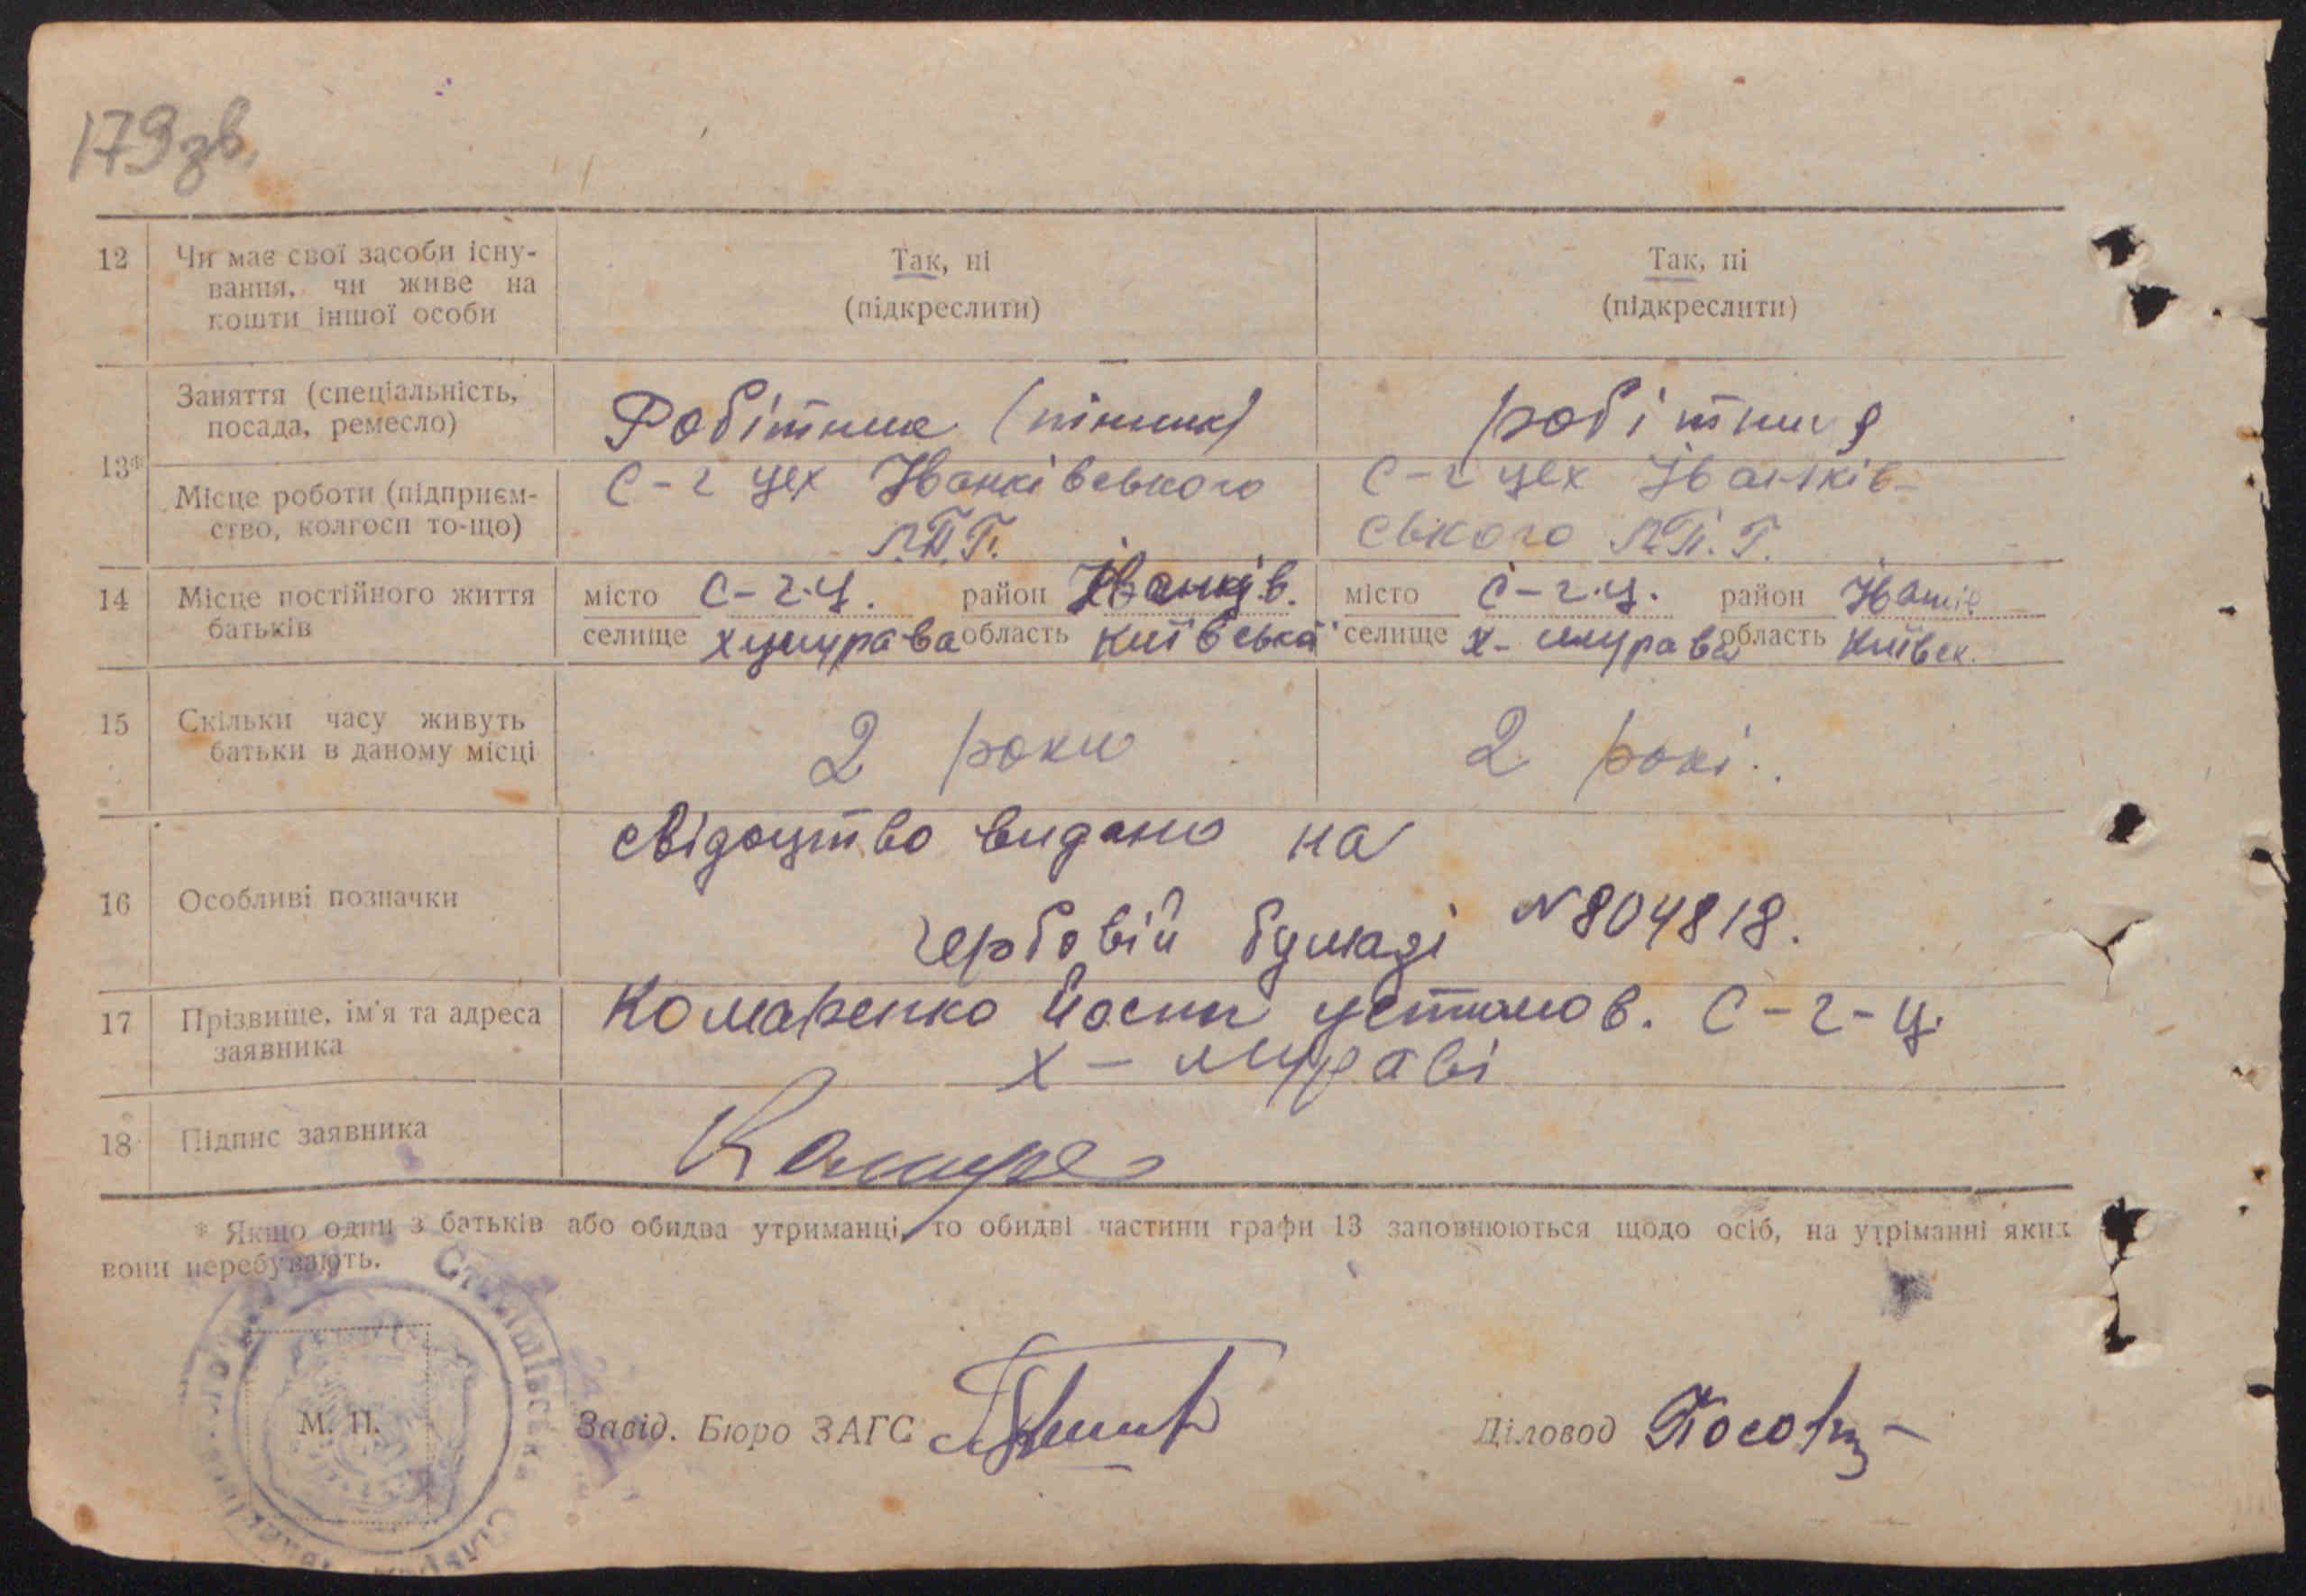 179 зв.
12 Чи має свої засоби існу- Так, ні Так, ні
вання, чи живе на (підкреслити) (підкреслити)
кошти іншої особи
Заняття (спеціальність,
посада, ремесло) Робітник робітниця
13*
Місце роботи (підприєм- С-г цех Іванківського С-г цех Іванків-
ство, колгосп то-що) Л.П.Г. ського Л.П.Г.
14 Місце постійного життя місто С-г.ц. район Іванків. місто С-г.ц. район
батьків селище область київська селище х- область київськ.
15 Скільки часу живуть
батьки в даному місці 2 роки 2 рокі.
свідоцтво видано на
16 Особливі позначки
гербовій бумазі №804818.
17 Прізвище, ім'я та адреса Комаренко Йосип устимов. С-г-ц.
заявника х- мураві
18 Підпис заявника
* Якщо один з батьків або обидва утриманці, то обидві частини графи 13 заповнюються щодо осіб, на утріманні яких
вони перебувають.
М. П. Завід. Бюро ЗАГС Діловод